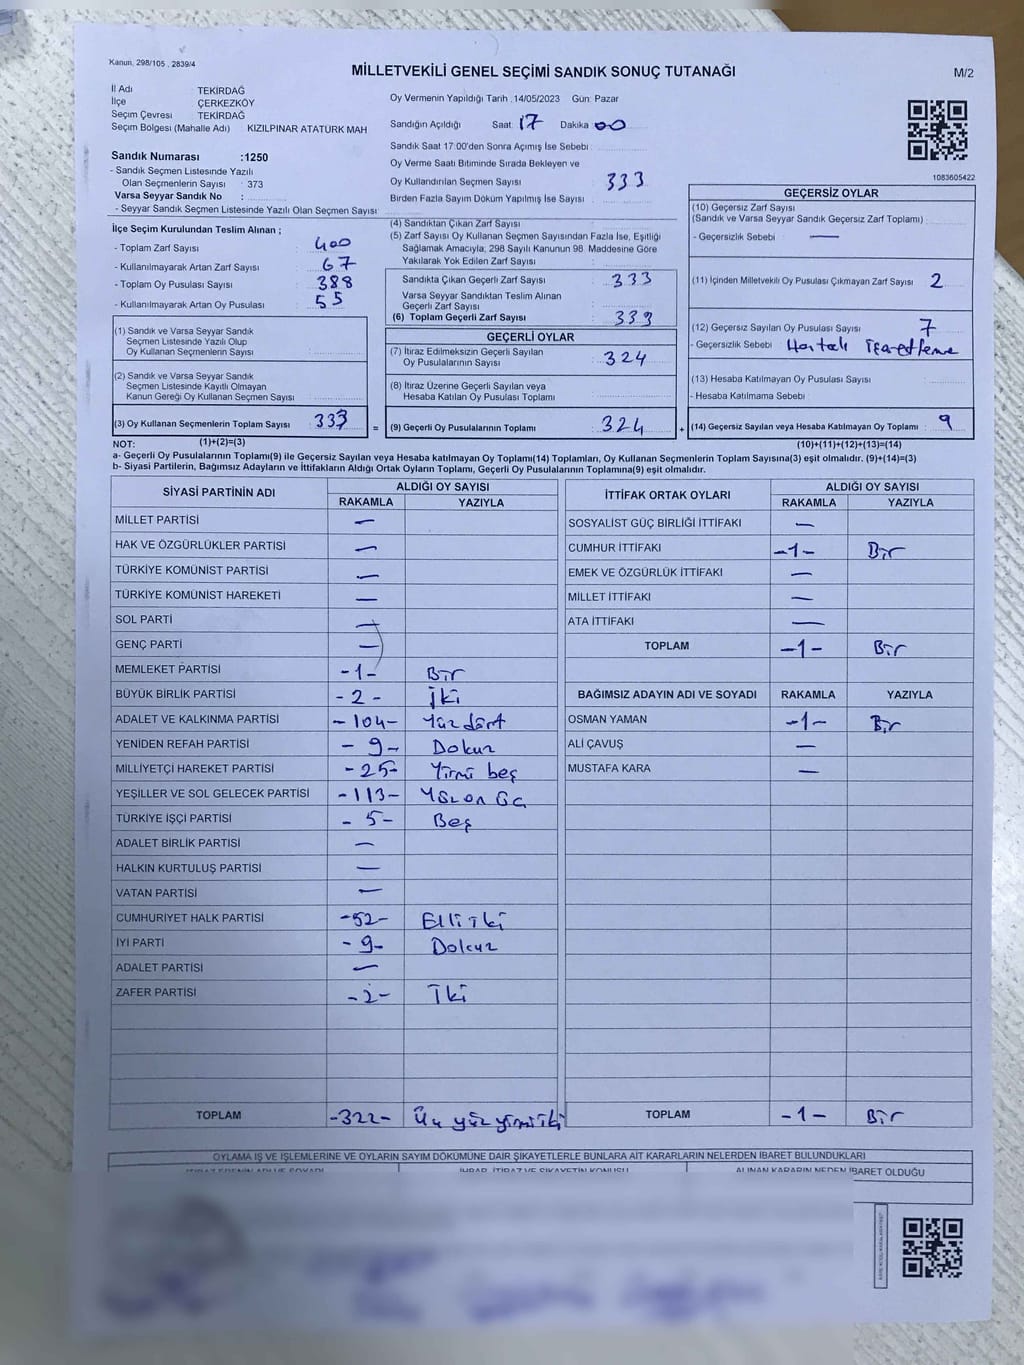 Kanun, 298/105 , 2839/4
MİLLETVEKİLİ GENEL SEÇİMİ SANDIK SONUÇ TUTANAĞI
M/2
İl Adı TEKİRDAĞ
İlçe ÇERKEZKÖY
Seçim Çevresi TEKİRDAĞ
Seçim Bölgesi (Mahalle Adı) KIZILPINAR ATATÜRK MAH
Sandık Numarası :1250
- Sandık Seçmen Listesinde Yazılı
Olan Seçmenlerin Sayısı : 373
Varsa Seyyar Sandık No :
- Seyyar Sandık Seçmen Listesinde Yazılı Olan Seçmen Sayısı
Oy Vermenin Yapıldığı Tarih :14/05/2023 Gün: Pazar
Sandığın Açıldığı Saat: 17 Dakika 00
Sandık Saat 17:00'den Sonra Açımış İse Sebebi :
Oy Verme Saati Bitiminde Sırada Bekleyen ve
Oy Kullandırılan Seçmen Sayısı 333
Birden Fazla Sayım Döküm Yapılmış İse Sayısı :
1083605422
İlçe Seçim Kurulundan Teslim Alınan ;
- Toplam Zarf Sayısı 400
- Kullanılmayarak Artan Zarf Sayısı 67
- Toplam Oy Pusulası Sayısı 388
- Kullanılmayarak Artan Oy Pusulası 55
(1) Sandık ve Varsa Seyyar Sandık
Seçmen Listesinde Yazılı Olup
Oy Kullanan Seçmenlerin Sayısı
(2) Sandık ve Varsa Seyyar Sandık
Seçmen Listesinde Kayıtlı Olmayan
Kanun Gereği Oy Kullanan Seçmen Sayısı
(3) Oy Kullanan Seçmenlerin Toplam Sayısı 333 =
(4) Sandıktan Çıkan Zarf Sayısı
(5) Zarf Sayısı Oy Kullanan Seçmen Sayısından Fazla İse, Eşitliği
Sağlamak Amacıyla, 298 Sayılı Kanunun 98. Maddesine Göre
Yakılarak Yok Edilen Zarf Sayısı
Sandıkta Çıkan Geçerli Zarf Sayısı 333
Varsa Seyyar Sandıktan Teslim Alınan
Geçerli Zarf Sayısı
(6) Toplam Geçerli Zarf Sayısı 333
GEÇERLİ OYLAR
(7) İtiraz Edilmeksizin Geçerli Sayılan
Oy Pusulalarının Sayısı 324
(8) İtiraz Üzerine Geçerli Sayılan veya
Hesaba Katılan Oy Pusulası Toplamı
(9) Geçerli Oy Pusulalarının Toplamı 324 +
GEÇERSİZ OYLAR
(10) Geçersiz Zarf Sayısı
(Sandık ve Varsa Seyyar Sandık Geçersiz Zarf Toplamı)
- Geçersizlik Sebebi : —
(11) İçinden Milletvekili Oy Pusulası Çıkmayan Zarf Sayısı 2
(12) Geçersiz Sayılan Oy Pusulası Sayısı 7
- Geçersizlik Sebebi : Hatalı İşaretleme
(13) Hesaba Katılmayan Oy Pusulası Sayısı
- Hesaba Katılmama Sebebi
(14) Geçersiz Sayılan veya Hesaba Katılmayan Oy Toplamı 9
NOT: (1)+(2)=(3)
(10)+(11)+(12)+(13)=(14)
a- Geçerli Oy Pusulasının Toplamı(9) ile Geçersiz Sayılan veya Hesaba katılmayan Oy Toplamı(14) Toplamları, Oy Kullanan Seçmenlerin Toplam Sayısına(3) eşit olmalıdır. (9)+(14)=(3)
b- Siyasi Partilerin, Bağımsız Adayların ve İttifakların Aldığı Ortak Oyların Toplamı, Geçerli Oy Pusulalarının Toplamına(9) eşit olmalıdır.
SİYASİ PARTİNİN ADI ALDIĞI OY SAYISI
RAKAMLA YAZIYLA
MİLLET PARTİSİ —
HAK VE ÖZGÜRLÜKLER PARTİSİ —
TÜRKİYE KOMÜNİST PARTİSİ —
TÜRKİYE KOMÜNİST HAREKETİ —
SOL PARTİ —
GENÇ PARTİ —
MEMLEKET PARTİSİ -1- Bir
BÜYÜK BİRLİK PARTİSİ -2- İki
ADALET VE KALKINMA PARTİSİ -104- Yüz dört
YENİDEN REFAH PARTİSİ -9- Dokuz
MİLLİYETÇİ HAREKET PARTİSİ -25- Yirmi beş
YEŞİLLER VE SOL GELECEK PARTİSİ -113- Yüz on üç
TÜRKİYE İŞÇİ PARTİSİ -5- Beş
ADALET BİRLİK PARTİSİ —
HALKIN KURTULUŞ PARTİSİ —
VATAN PARTİSİ —
CUMHURİYET HALK PARTİSİ -52- Elli iki
İYİ PARTİ -9- Dokuz
ADALET PARTİSİ —
ZAFER PARTİSİ -2- İki
TOPLAM -322- Üç yüz yirmi iki
İTTİFAK ORTAK OYLARI ALDIĞI OY SAYISI
RAKAMLA YAZIYLA
SOSYALİST GÜÇ BİRLİĞİ İTTİFAKI —
CUMHUR İTTİFAKI -1- Bir
EMEK VE ÖZGÜRLÜK İTTİFAKI —
MİLLET İTTİFAKI —
ATA İTTİFAKI —
TOPLAM -1- Bir
BAĞIMSIZ ADAYIN ADI VE SOYADI RAKAMLA YAZIYLA
OSMAN YAMAN -1- Bir
ALİ ÇAVUŞ —
MUSTAFA KARA —
TOPLAM -1- Bir
OYLAMA İŞ VE İŞLEMLERİNE VE OYLARIN SAYIM DÖKÜMÜNE DAİR ŞİKAYETLERLE BUNLARA AİT KARARLARIN NELERDEN İBARET BULUNDUKLARI
İTİRAZ EDENİN ADI VE SOYADI İHBAR, İTİRAZ VE ŞİKAYETİN KONUSU ALINAN KARARIN NEDEN İBARET OLDUĞU